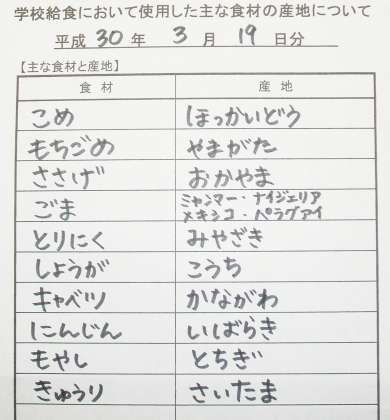 学校給食において使用した主な食材の産地について
平成 30 年 3 月 19 日分
【主な食材と産地】
食材 産地
こめ ほっかいどう
もちごめ やまがた
ささげ おかやま
ごま ミャンマー・ナイジェリア
メキシコ・パラグアイ
とりにく みやざき
しょうが こうち
キャベツ かながわ
にんじん いばらき
もやし とちぎ
きゅうり さいたま